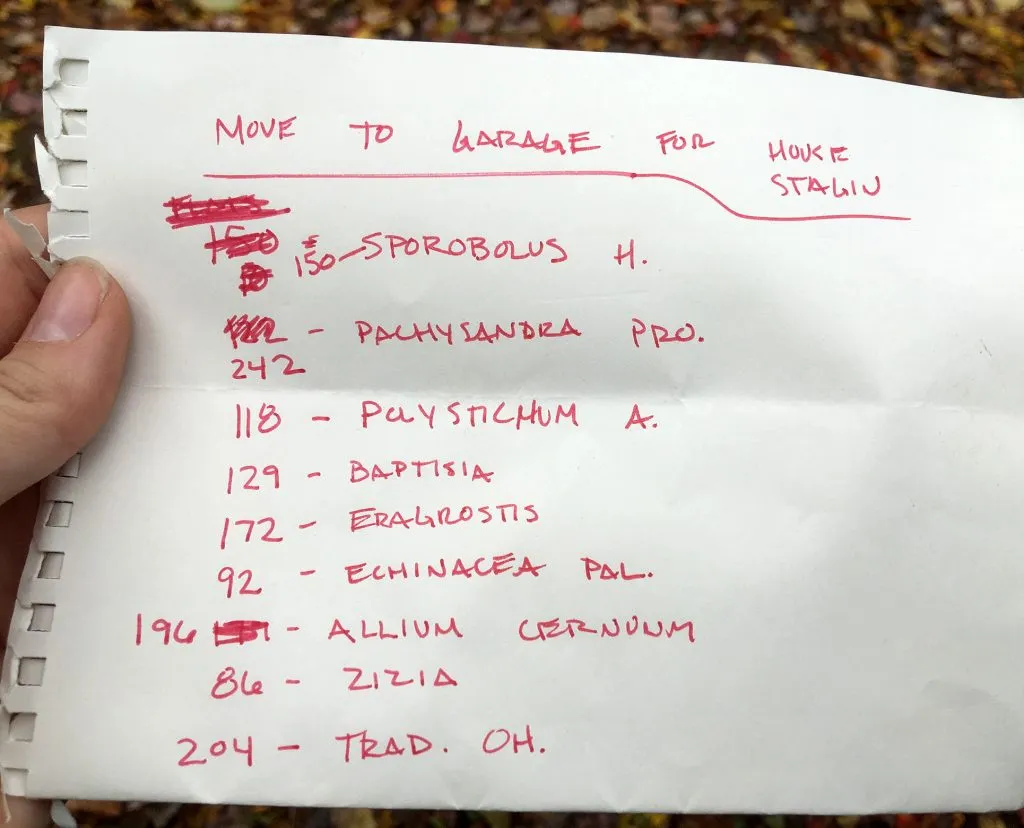 MOVE TO GARAGE FOR HOUSE
STAGIN
150 - SPOROBOLUS H.
- PACHYSANDRA PRO.
242
118 - POLYSTICHUM A.
129 - BAPTISIA
172 - ERAGROSTIS
92 - ECHINACEA PAL.
196 - ALLIUM CERNUUM
86 - ZIZIA
204 - TRAD. OH.